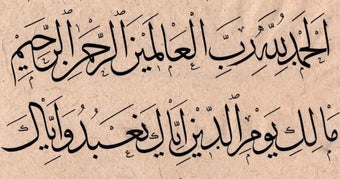 الحمد لله رب العالمين الرحمن الرحيم
مالك يوم الدين اياك نعبد واياك